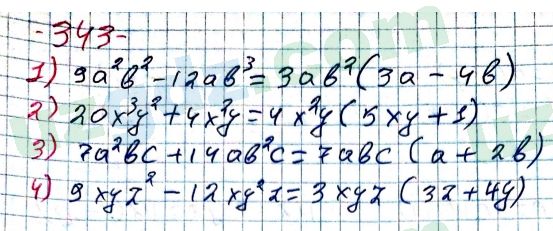 -343-
1) 9a²b² - 12ab³ = 3ab²(3a - 4b)
2) 20x³y² + 4x²y = 4x²y(5xy + 1)
3) 7a²bc + 14ab²c = 7abc(a + 2b)
4) 9xyz² - 12xy²z = 3xyz(3z + 4y)